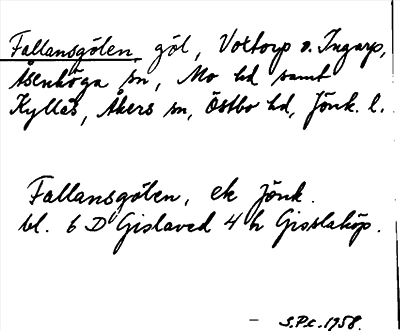 Fallansgölen, göl, Voxtorp o. Ingarp,
Åsenhöga sn, Mo hd samt
Kyllås, Åkers sn, Östbo hd, Jönk. l.
Fallansgölen, ek Jönk.
bl. 6 D Gislaved 4 h Gisslaköp.
– S.P.c. 1958.